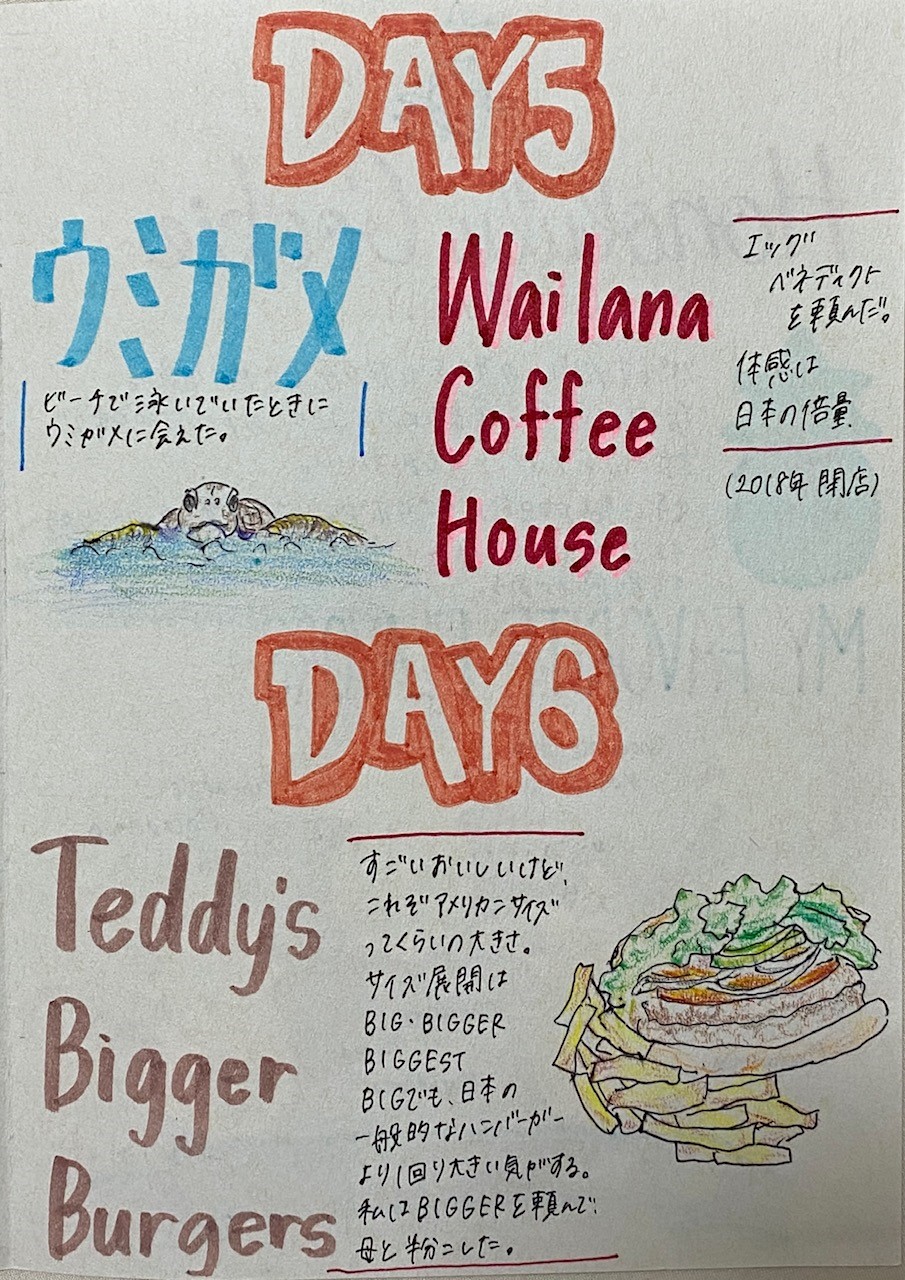 DAY5
ウミガメ
ビーチで泳いでいたときに
ウミガメに会えた。
Wailana
Coffee
House
エッグ
ベネディクト
を頼んだ。
体感は
日本の倍量
(2018年 閉店)
DAY6
Teddy's
Bigger
Burgers
すごいおいしいけど、
これぞアメリカンサイズ
ってくらいの大きさ。
サイズ展開は
BIG・BIGGER
BIGGEST
BIGでも、日本の
一般的なハンバーガー
より1回り大きい気がする。
私はBIGGERを頼んで、
母と半分こした。